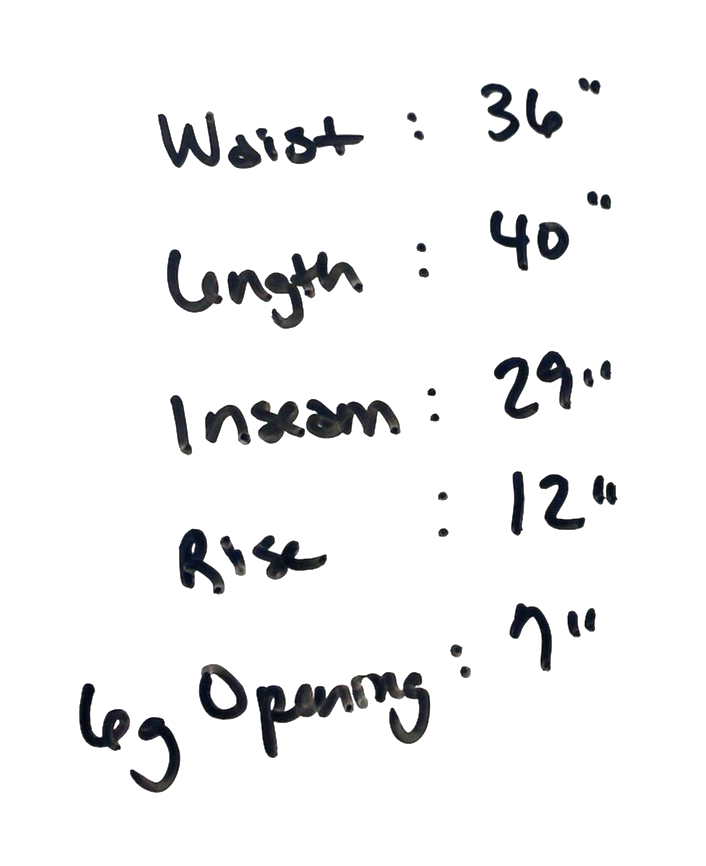 Waist : 36"
Length : 40"
Inseam : 29"
Rise : 12"
Leg Opening : 7"